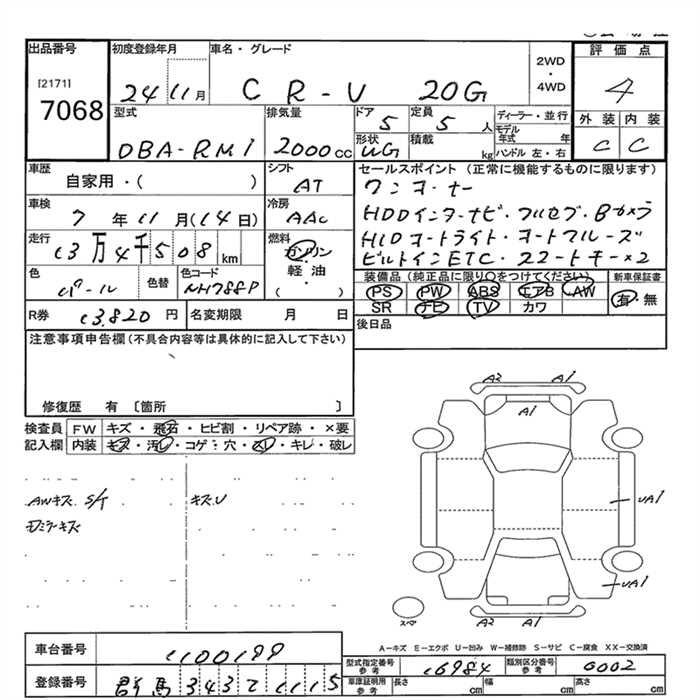 出品番号 初度登録年月 車名・グレード 評価点
[2171] 7068 24 11月 CR-V 20G 2WD・4WD 4
型式 排気量 ドア 定員 ディーラー・並行 外装 内装
DBA-RM1 2000cc 5 5人 モデル年式 年 C C
形状 積載 kg ハンドル 左・右
UG
車歴 シフト セールスポイント (正常に機能するものに限ります)
自家用・( ) AT ワンオーナー
車検 冷房 HDDインターナビ・フルセグ・Bカメラ
7年11月(14日) AAC HIDオートライト・オートクルーズ
走行 燃料 ビルトインETC・スマートキー×2
13万4千508km ガソリン
軽・油
( ・ )
色 色替 色コード 装備品(純正品に限り○をつけてください) 新車保証書
パール NH788P PS PW ABS エアB AW 有・無
SR ナビ TV カワ
R券 13,820円 名変期限 月 日 後日品
注意事項申告欄(不具合内容等は具体的に記入して下さい)
修復歴 有 〔箇所 〕
検査員 FW キズ・飛石・ヒビ割・リペア跡・×要
記入欄 内装 キズ・汚レ・コゲ・穴・スレ・キレ・破レ
A2 A1
AWキズ S/T キズU
ミラーキズ
UA1
UA1
スペ A2 A1
A-キズ E-エクボ U-凹み W-補修跡 S-サビ C-腐食 XX-交換済
車台番号 1100199
型式指定番号 参考 16984 類別区分番号 参考 0002
登録番号 群馬 343 て 1115
車庫証明用 参考 長さ cm 幅 cm 高さ cm